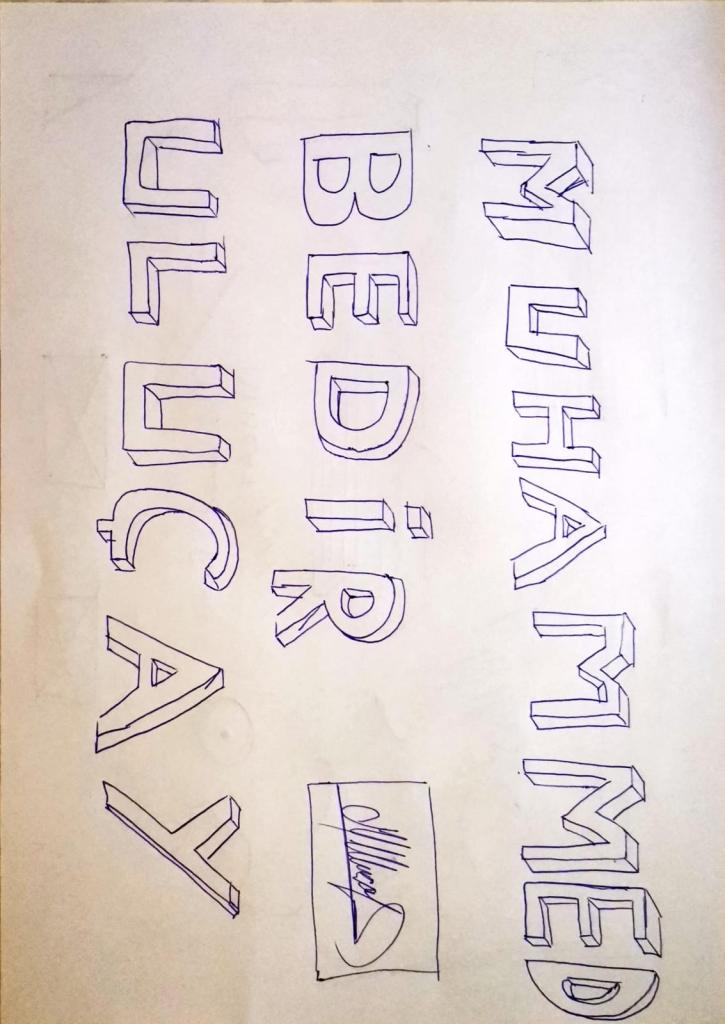 MUHAMMED
BEDİR
ULUÇAY